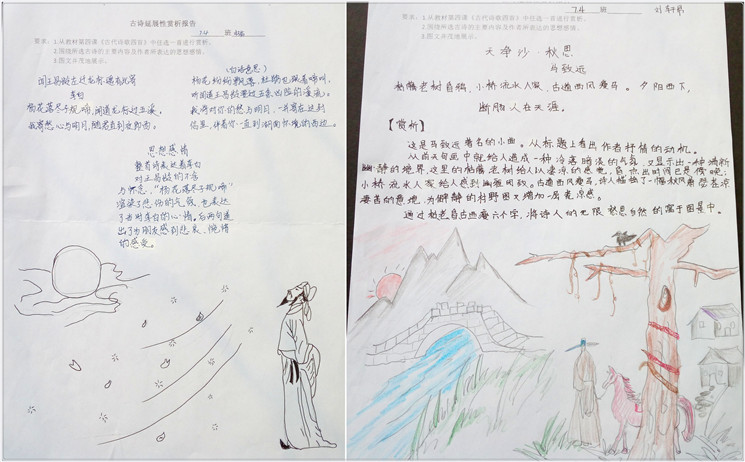 古诗延展性赏析报告
7.4 班
要求：1.从教材第四课《古代诗歌四首》中任选一首进行赏析。
2.围绕所选古诗的主要内容及作者所表达的思想感情。
3.图文并茂地展示。
闻王昌龄左迁龙标遥有此寄
李白
杨花落尽子规啼，闻道龙标过五溪。
我寄愁心与明月，随君直到夜郎西。
杨花纷纷飘落，杜鹃也
听闻道王昌龄要过五条
我寄对你的愁与明月，
你一直到湖南
思想感情
整首诗表达着李白
对王昌龄的不舍
与怀念，“杨花落尽子规啼”
渲染了悲伤的气氛，也表达
了当时李白的心情，后两句道
出了当朋友感到悲哀、惋惜
的感受。
7.4 班
要求：1.从教材第四课《古代诗歌四首》中任选一首进行赏析。
2.围绕所选古诗的主要内容及作者所表达的思想感情。
3.图文并茂地展示。
天净沙·秋思
马致远
枯藤老树昏鸦，小桥流水人家，古道西风瘦马。夕阳西下，
断肠人在天涯。
【赏析】
这是马致远著名的小曲。从标题上看出作者抒情的动机。
从前天句画中就给人造成一种冷落暗淡的气氛，又显示出一种清新
幽静的境界，这里的枯藤老树给人以凄凉的感觉，昏点出时间已是傍晚；
小桥流水人家给人感到幽雅闲致。古道西风瘦马，诗人描绘了一幅秋风萧瑟苍凉
凄苦的意境，为僻静的村野图又增加一层荒凉感。
通过枯老昏古西瘦六个字，将诗人的无限愁思自然的寓于图景中。